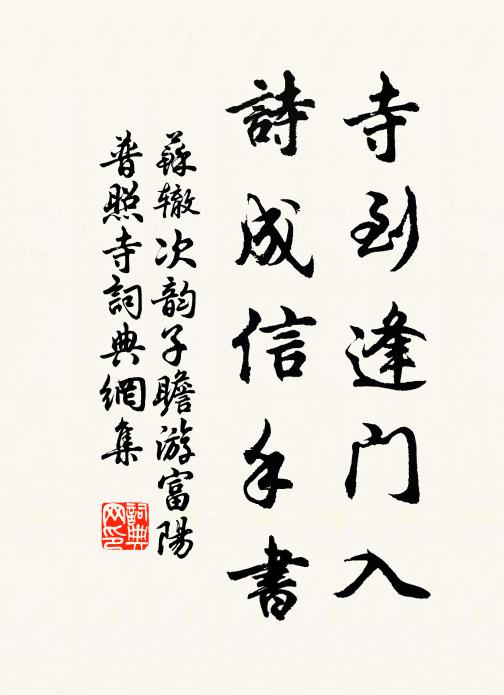 寺到逢门入
詩成信手書
蘇辙次韵子瞻游富陽
普照寺詞典網集
詞典网印